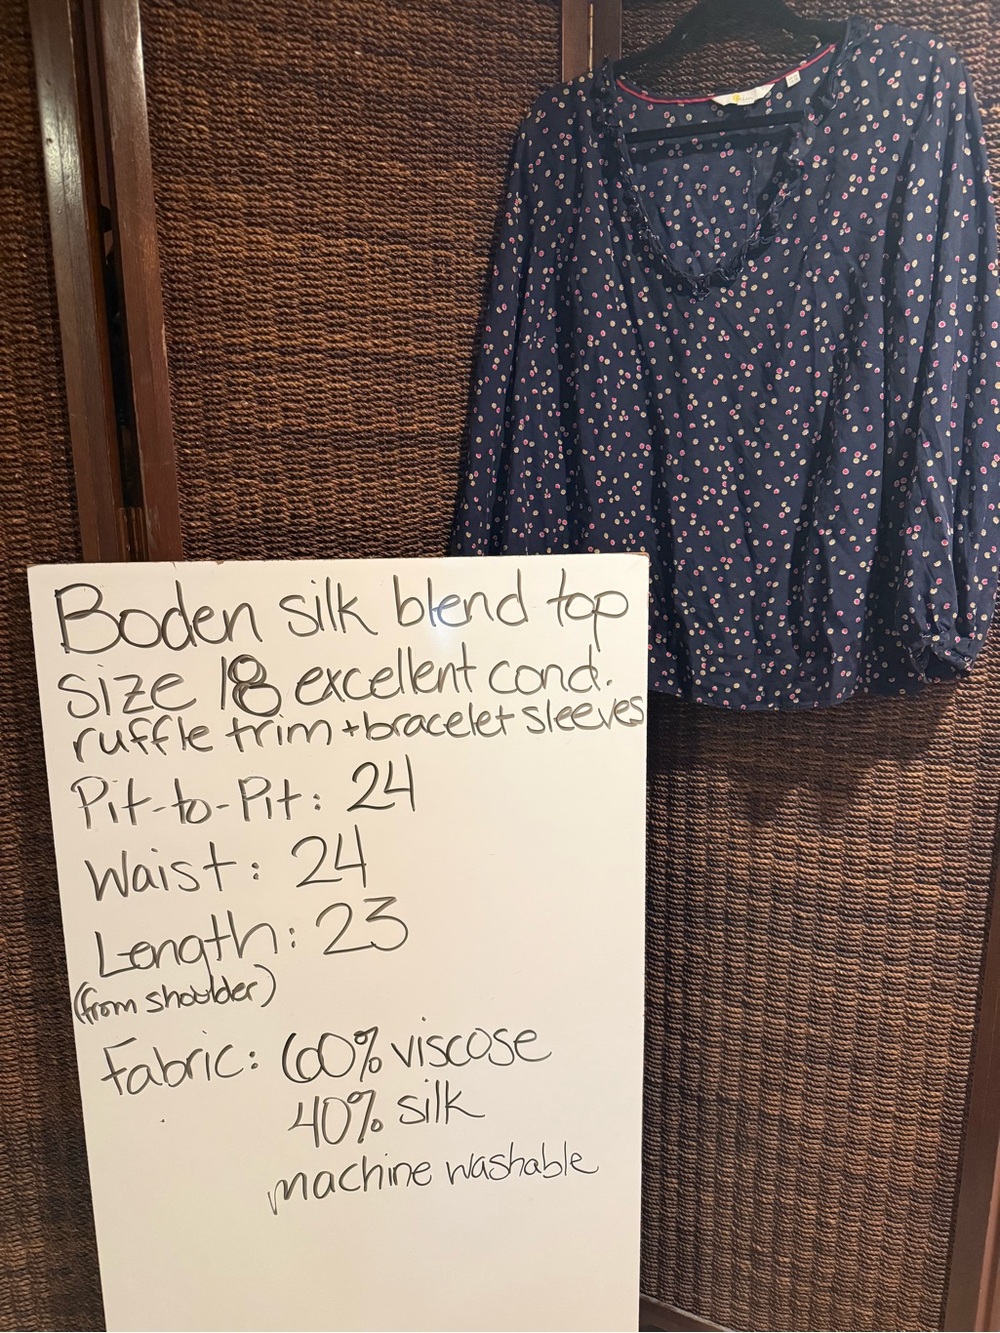 Boden silk blend top
size 18 excellent cond.
ruffle trim + bracelet sleeves
Pit-to-Pit: 24
Waist: 24
Length: 23
(from shoulder)
Fabric: 60% viscose
40% silk
machine washable